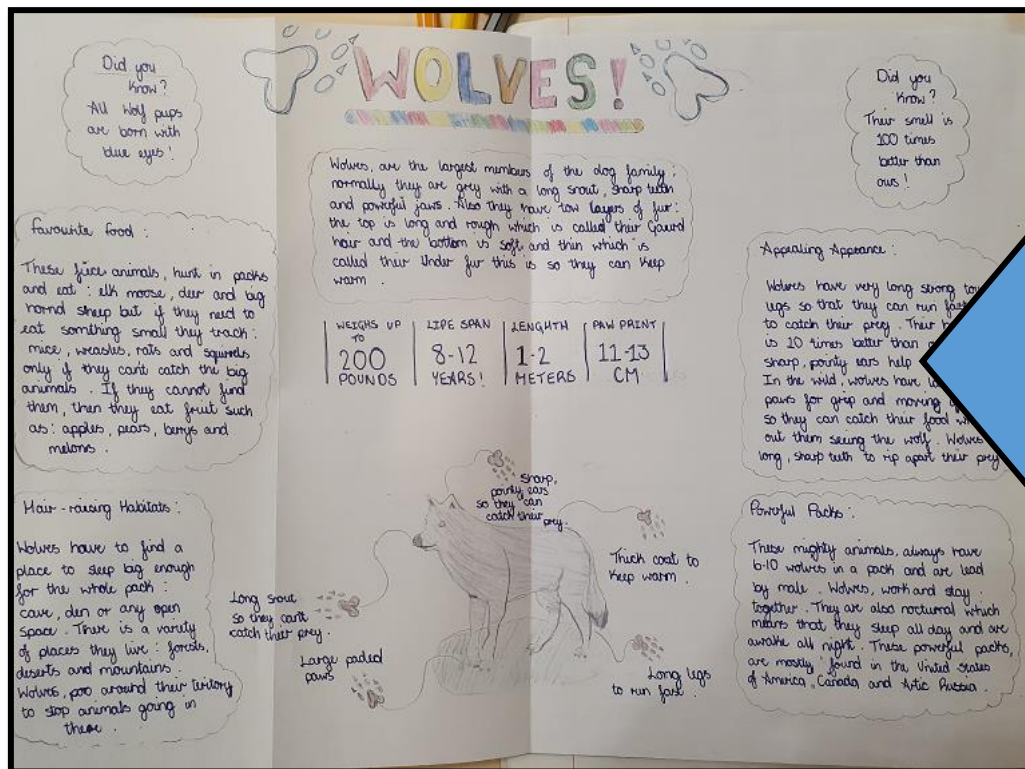 WOLVES!
Did you
know?
All Wolf pups
are born with
blue eyes!
Did you
know?
Their smell is
100 times
better than
ours!
Wolves, are the largest members of the dog family;
normally they are grey with a long snout, sharp teeth
and powerful jaws. Also they have tow layers of fur:
the top is long and rough which is called their Gaurd
hair and the bottom is soft and thin which is
called their Under fur this is so they can keep
warm.
favourite food:
These firce animals, hunt in packs
and eat: elk moose, deer and big
hornd sheep but if they need to
eat somithing small they track:
mice, weasles, rats and squirrels
only if they cant catch the big
animals. If they cannot find
them, then they eat fruit such
as: apples, pears, berrys and
melons.
WEIGHS UP
TO
200
POUNDS
LIFE SPAN
8-12
YEARS!
LENGHTH
1-2
METERS
PAW PRINT
11-13
CM
Appealing Appearance:
Wolves have very long strong
legs so that they can run
to catch their prey. Their
is 20 times better than
sharp, pointy ears help
In the wild, wolves have
paws for grip and moving
so they can catch their food
out them seeing the wolf. Wolves
long, sharp teeth to rip apart their prey
Hair-raising Habitats:
Wolves have to find a
place to sleep big enough
for the whole pack:
cave, den or any open
space. There is a variety
of places they live: forests,
deserts and mountains.
Wolves, poo around their teritory
to stop animals going in
there.
sharp,
pointy ears
so they can
catch their
prey.
Thick coat to
keep warm.
Long snout
so they cant
catch their prey.
Large paded
paws
Long legs
to run fast.
Powerful Packs:
These mighty animals, always have
6-10 wolves in a pack and are lead
by male. Wolves, work and stay
together. They are also nocturnal which
means that they sleep all day and are
awake all night. These powerful packs,
are mostly found in the United States
of America, Canada, and Artic Russia.